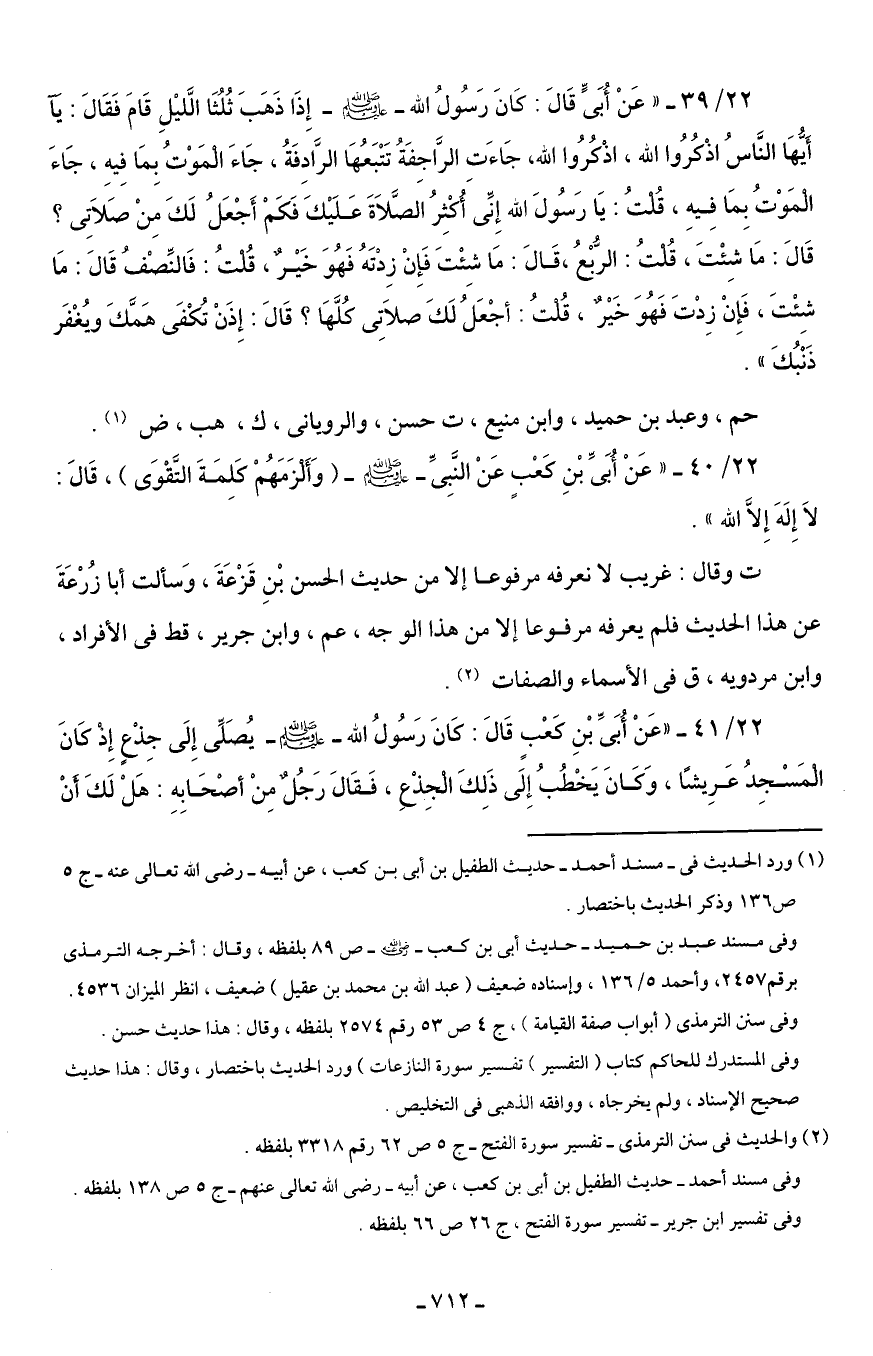 ٣٩/٢٢ ـ « عَنْ أُبَىٍّ قَالَ : كَانَ رَسُولُ الله ـ ﷺ ـ إِذَا ذَهَبَ ثُلُثَا الَّليْلِ قَامَ فَقَالَ : يَآ
أَيُّهَا النَّاسُ اذْكُرُوا الله ، اذْكُرُوا الله، جَاءَتِ الرَّاجِفَةُ تَتْبَعُهَا الرَّادِفَةُ ، جَاءَ الْمَوْتُ بِمَا فِيهِ ، جَاءَ
الْمَوْتُ بِمَا فِيهِ ، قُلْتُ : يَا رَسُولَ الله إِنِّى أُكْثِرُ الصَّلاَةَ عَلَيْكَ فَكَمْ أَجْعَلُ لَكَ مِنْ صَلاَتِى ؟
قَالَ : مَا شئْتَ ، قُلْتُ : الرُّبْعُ ،قَالَ : مَا شئْتَ فَإِنْ زِدْتَهُ فَهُوَ خَيْرٌ، قُلْتُ : فَالنِّصْفُ قَالَ : مَا
شئْتَ ، فَإِنْ زِدْتَ فَهُوَ خَيْرٌ ، قُلْتُ : أجْعَلُ لَكَ صلاَتِى كُلَّهَا ؟ قَالَ : إِذَنْ تُكْفَى هَمَّكَ ويُغْفَر
ذَنْبُكَ » .
حم ، وعبد بن حميد ، وابن منيع ، ت حسن ، والرويانى ، ك ، هب ، ض (١) .
٤٠/٢٢ ـ « عَنْ أُبَىِّ بْنِ كَعْبٍ عَنْ النَّبِىِّ ـ ﷺ ـ ( وَأَلْزَمَهُمْ كَلِمَةَ التَّقْوَى ) ، قَالَ :
لاَ إِلَهَ إِلاَّ الله » .
ت وقال : غريب لا نعرفه مرفوعا إلا من حديث الحسن بْنِ قَزْعَةَ ، وَسألت أبا زُرْعَةَ
عن هذا الحديث فلم يعرفه مرفوعا إلا من هذا الو جه ، عم ، وابن جرير ، قط فى الأفراد ،
وابن مردويه ، ق فى الأسماء والصفات (٢) .
٤١/٢٢ ـ «عَنْ أُبَىِّ بْنِ كَعْبٍ قَالَ : كَانَ رَسُولُ الله ـ ﷺ ـ يُصَلِّى إِلَى جِذْعٍ إِذْ كَانَ
الْمَسْجِدُ عَرِيشًا ، وَكَانَ يَخْطُبُ إِلَى ذَلِكَ الْجِذْعِ ، فَقَالَ رَجُلٌ مِنْ أصْحَابِهِ : هَلْ لَكَ أَنْ
(١) ورد الحديث فى ـ مسند أحمد ـ حديث الطفيل بن أبى بن كعب ، عن أبيه ـ رضى الله تعالى عنه ـ ج ٥
ص١٣٦ وذكر الحديث باختصار .
وفى مسند عبد بن حميد ـ حديث أبى بن كعب ـ رضي الله عنه ـ ص ٨٩ بلفظه ، وقال : أخرجه الترمذى
برقم٢٤٥٧، وأحمد ٥/ ١٣٦ ، وإسناده ضعيف ( عبد الله بن محمد بن عقيل ) ضعيف ، انظر الميزان ٤٥٣٦.
وفى سنن الترمذى ( أبواب صفة القيامة ) ، ج ٤ ص ٥٣ رقم ٢٥٧٤ بلفظه ، وقال : هذا حديث حسن .
وفى المستدرك للحاكم كتاب ( التفسير ) تفسير سورة النازعات ) ورد الحديث باختصار ، وقال : هذا حديث
صحيح الإسناد ، ولم يخرجاه ، ووافقه الذهبى فى التخليص .
(٢) والحديث فى سنن الترمذى ـ تفسير سورة الفتح ـ ج ٥ ص ٦٢ رقم ٣٣١٨ بلفظه .
وفى مسند أحمد ـ حديث الطفيل بن أبى بن كعب ، عن أبيه ـ رضى الله تعالى عنهم ـ ج ٥ ص ١٣٨ بلفظه .
وفى تفسير ابن جرير ـ تفسير سورة الفتح ، ج ٢٦ ص ٦٦ بلفظه .
ـ ٧١٢ ـ